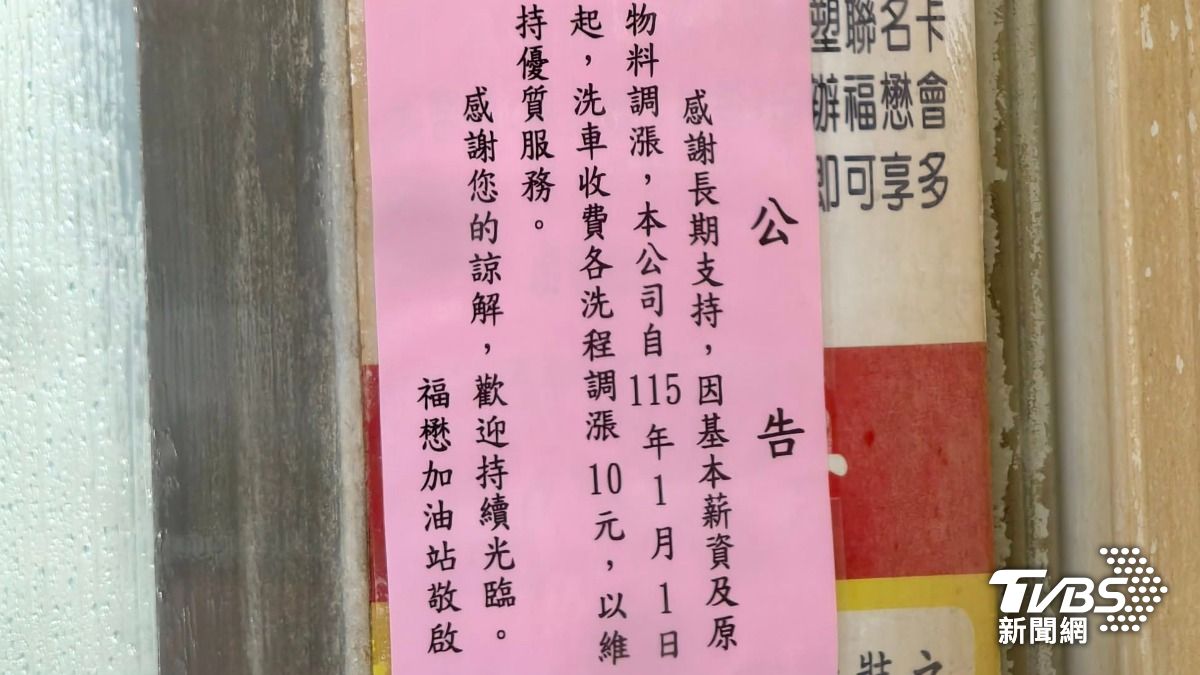 公告
感謝長期支持，因基本薪資及原
物料調漲，本公司自115年1月1日
起，洗車收費各洗程調漲10元，以維
持優質服務。
感謝您的諒解，歡迎持續光臨。
福懋加油站敬啟
塑聯名卡
辦福懋會
即可享多
TVBS
新聞網